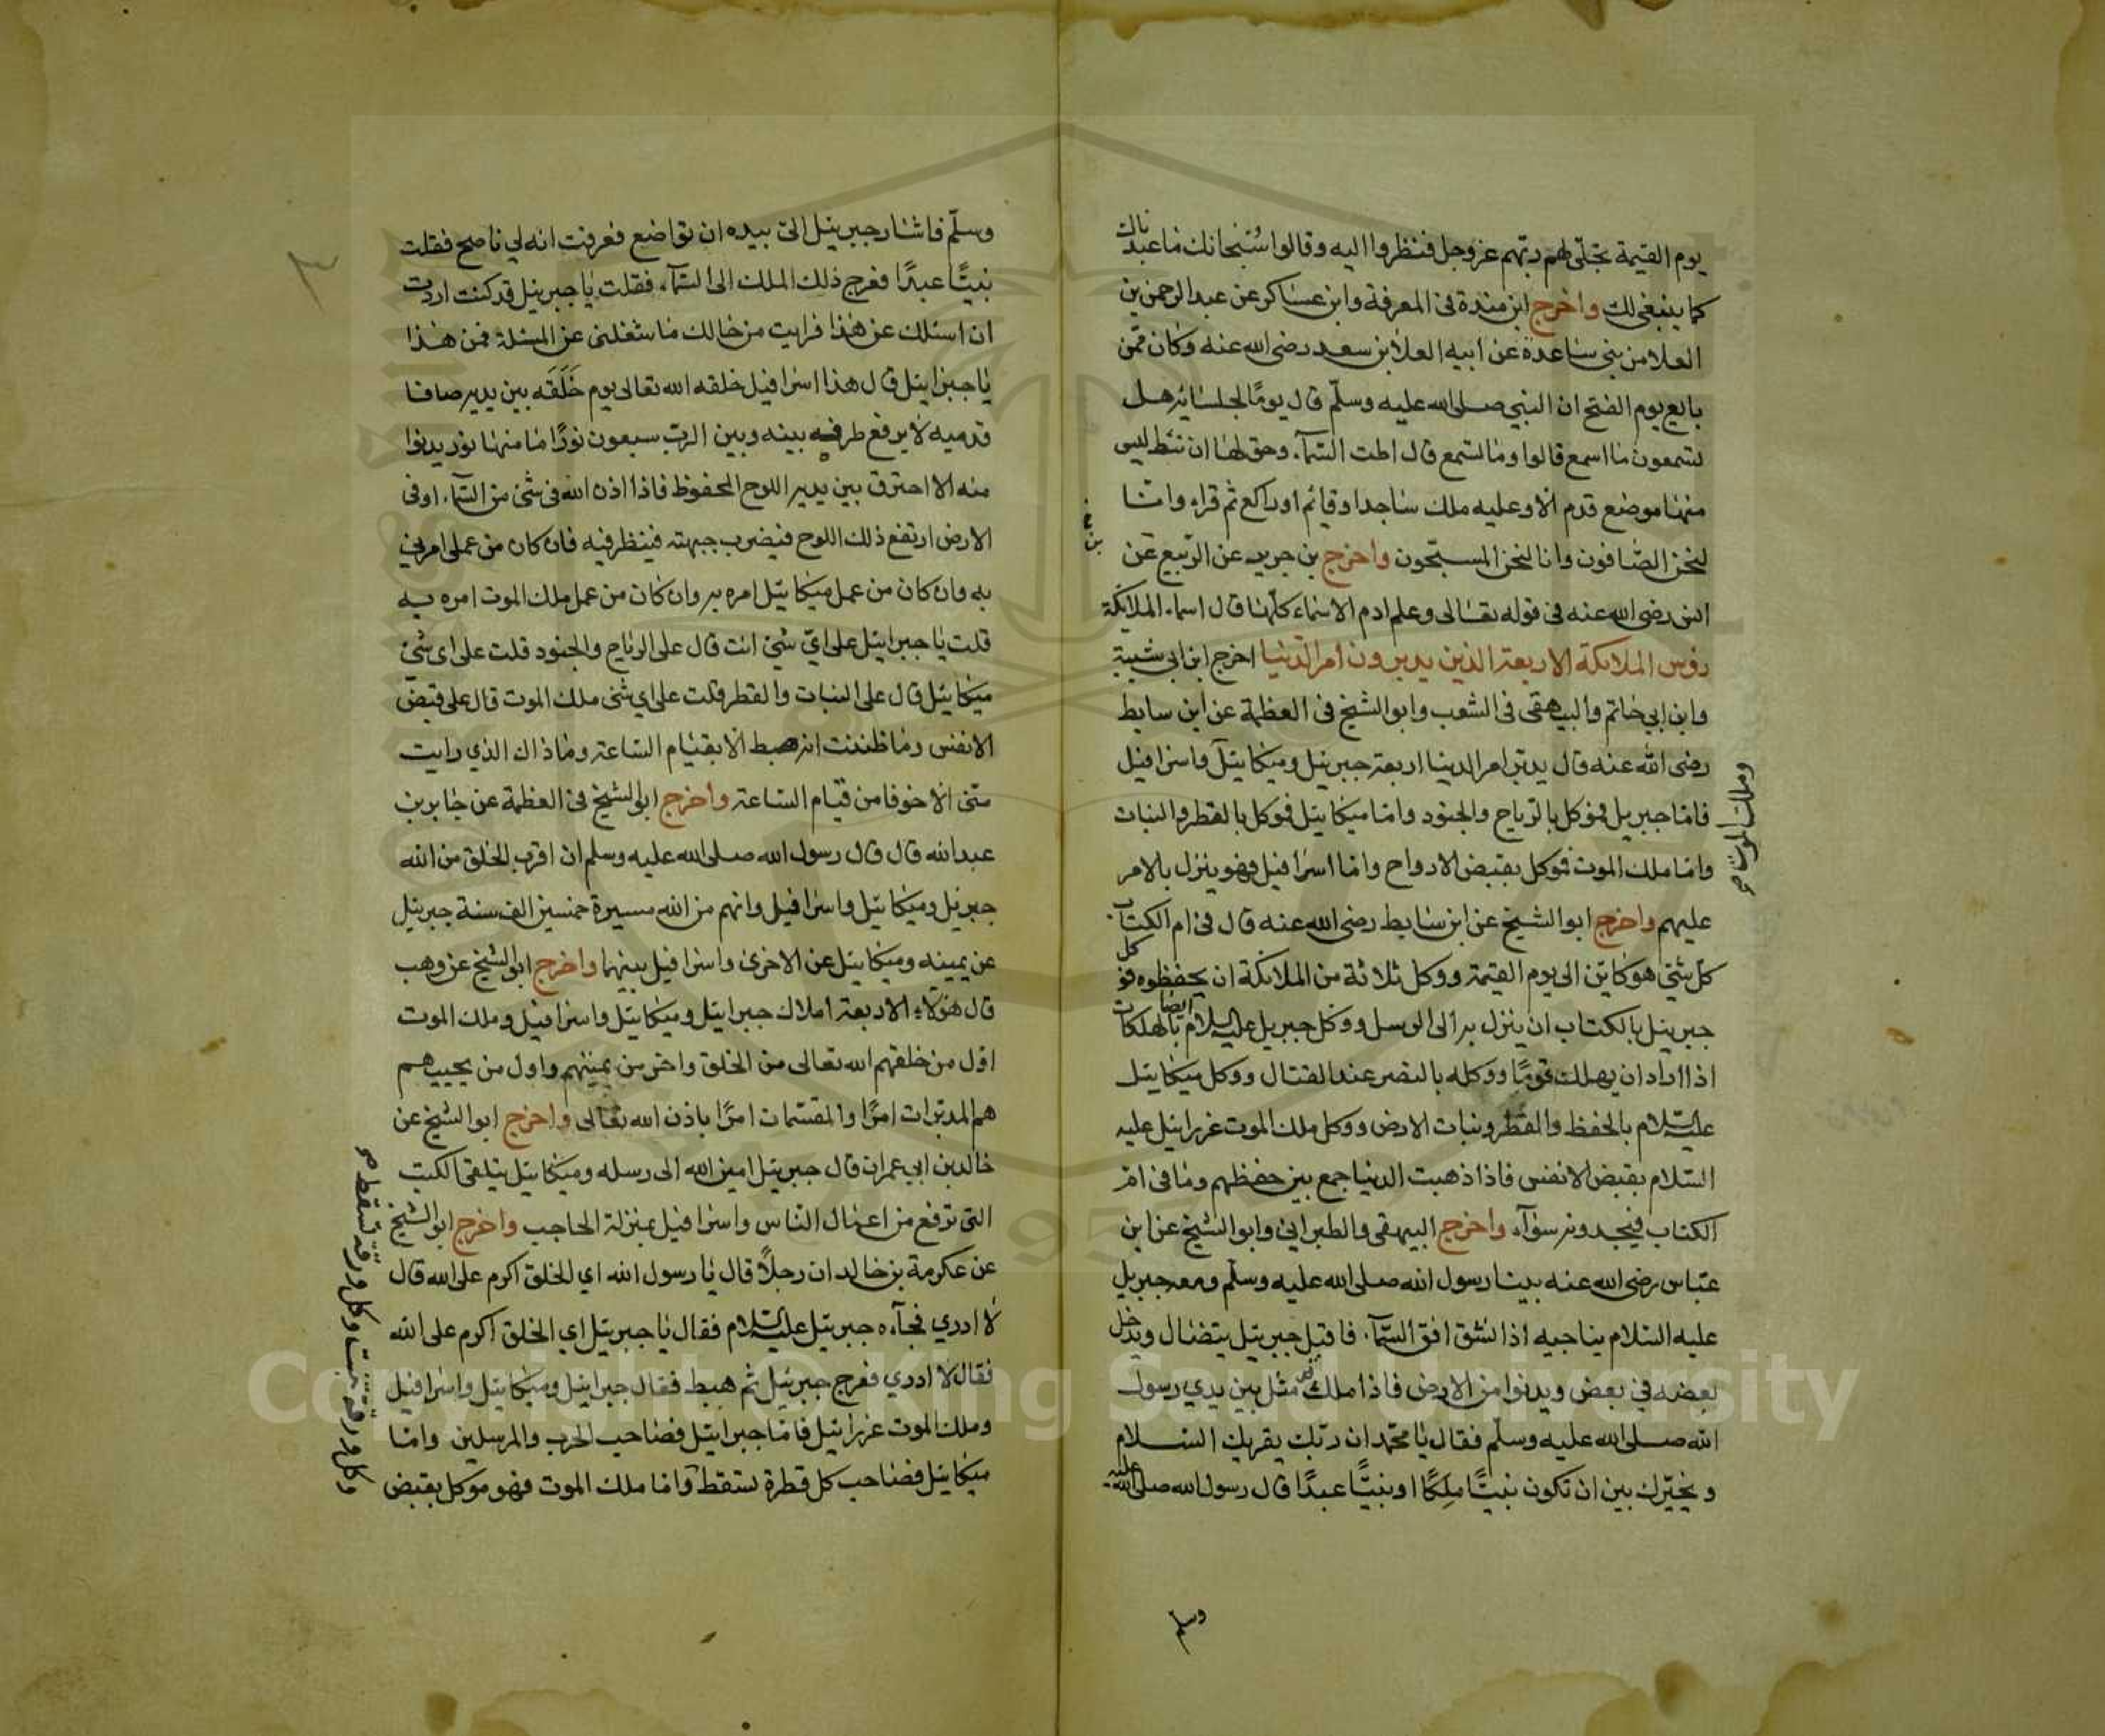 يوم القيمة تجلّى لهم ربّهم عز وجل فنظروا اليه وقالوا سُبْحانك ما عبدناك
كما ينبغي لك واخرج ابن مندة في المعرفة وابن عساكر عن عبد الرحمن بن
العلا من بني ساعدة عن ابيه العلا بن سعد رضى الله عنه وكان ممّن
بايع يوم الفتح ان النبي صلى الله عليه وسلّم قال يومًا لجلسائه هل
تسمعون ما اسمع قالوا وما تسمع قال اطت السّمآء وحق لها ان تئط ليس
منها موضع قدم الا وعليه ملك ساجدا وقائم او راكع ثم قراء وانّا
لنحن الصّافون وانا لنحن المسبّحون واخرج بن جرير عن الرّبيع بن
انس رضى الله عنه في قوله تعالى وعلم ادم الاسماء كلّها قال اسماء الملائكة
رؤس الملائكة الاربعة الذين يدبرون امر الدّنيا اخرج ابن ابي شيبة
وابن ابي حاتم والبيهقى في الشعب وابو الشيخ في العظمة عن ابن سابط
رضى الله عنه قال يدبّر امر الدنيا اربعة جبريئل وميكائيل واسرافيل
وملك الموت صح
فامّا جبريل فوكل بالرّياح والجنود وامّا ميكائيل فوكل بالقطر والنبات
وامّا ملك الموت فوكل بقبض الارواح وامّا اسرافيل فهو ينزل بالامر
عليهم واخرج ابو الشيخ عن ابن سابط رضى الله عنه قال في ام الكتاب
كلّ شئ هو كاين الى يوم القيمة ووكل ثلاثة من الملائكة ان يحفظوه فوكل
جبريئل بالكتاب ان ينزل به الى الرسل ووكل جبريل عليه السلام ايضا بالهلكات
اذا اراد ان يهلك قومًا ووكله بالنصر عند القتال ووكل ميكائيل
عليه السّلام بالحفظ والقطر ونبات الارض ووكل ملك الموت عزرائيل عليه
السّلام بقبض الانفس فاذا ذهبت الدنيا جمع بين حفظهم وما في امّ
الكتاب فيجدونه سوآء واخرج البيهقى والطبراني وابو الشيخ عن ابن
عبّاس رضى الله عنه بينا رسول الله صلى الله عليه وسلّم ومعه جبريل
عليه السّلام يناجيه اذا نشق افق السّمآء فاقبل جبريئل يتضال ويدخل
بعضه في بعض ويدنوا من الارض فاذا ملك قد مثل بين يدي رسول
الله صلى الله عليه وسلّم فقال يا محمّد ان ربّك يقريك السّلام
و يخيّرك بين ان تكون نبيًّا مَلِكًا او نبيًّا عبدًا قال رسول الله صلى الله عليه
وسلم
٣
وسلّم فاشار جبريئل الىّ بيده ان تواضع فعرفت انه لي ناصح فقلت
نبيًّا عبدًا فعرج ذلك الملك الى السّمآء فقلت يا جبريئل قد كنت اردت
ان اسئلك عن هذا فرايت من حالك ما شغلنى عن المسئلة فمن هذا
يا جبرايئل قال هذا اسرافيل خلقه الله تعالى يوم خَلَقَه بين يديه صافا
قدميه لا يرفع طرفه بينه وبين الربّ سبعون نورًا ما منها نور يدنوا
منه الا احترق بين يديه اللوح المحفوظ فاذا اذن الله في شئ من السّمآء او في
الارض ارتفع ذلك اللوح فيضرب جبهته فينظر فيه فان كان من عملى امرني
به وان كان من عمل ميكائيل امره به وان كان من عمل ملك الموت امره به
قلت يا جبرايئل على ايّ شئ انت قال على الرياح والجنود قلت على اى شئ
ميكائيل قال على النبات والقطر قلت على اي شئ ملك الموت قال على قبض
الانفس وما ظننت انه هبط الا بقيام السّاعة وما ذاك الذي رايت
منّى الا خوفا من قيام السّاعة واخرج ابو الشيخ في العظمة عن جابر بن
عبد الله قال قال رسول الله صلى الله عليه وسلم ان اقرب الخلق من الله
جبريل وميكائيل واسرافيل وانهم من الله مسيرة خمسين الف سنة جبريئل
عن يمينه وميكائيل عن الاخرى واسرافيل بينهما واخرج ابو الشيخ عن وهب
قال هؤلاء الاربعة املاك جبرايئل وميكائيل واسرافيل وملك الموت
اوّل من خلقهم الله تعالى من الخلق واخر من يميتهم واول من يحييهم
هم المدبّرات امرًا والمقسّمات امرًا باذن الله تعالى واخرج ابو الشيخ عن
خالد بن ابي عمران قال جبريئل امين الله الى رسله وميكائيل يتلقى الكتب
التى ترفع من اعمال النّاس واسرافيل بمنزلة الحاجب واخرج ابو الشيخ
عن عكرمة بن خالد ان رجلًا قال يا رسول الله اي الخلق اكرم على الله قال
لا ادري فجآءه جبريئل عليه السّلام فقال يا جبريئل اي الخلق اكرم على الله
فقال لا ادري فعرج جبريئل ثم هبط فقال جبرايئل وميكائيل واسرافيل
وملك الموت عزرائيل فامّا جبرايئل فصاحب الحرب والمرسلين وامّا
ميكائيل فصاحب كل قطرة تسقط وامّا ملك الموت فهو موكل بقبض
وكل ورقة تنبت وكل ورقة تسقط صح
Copyright © King Saud University